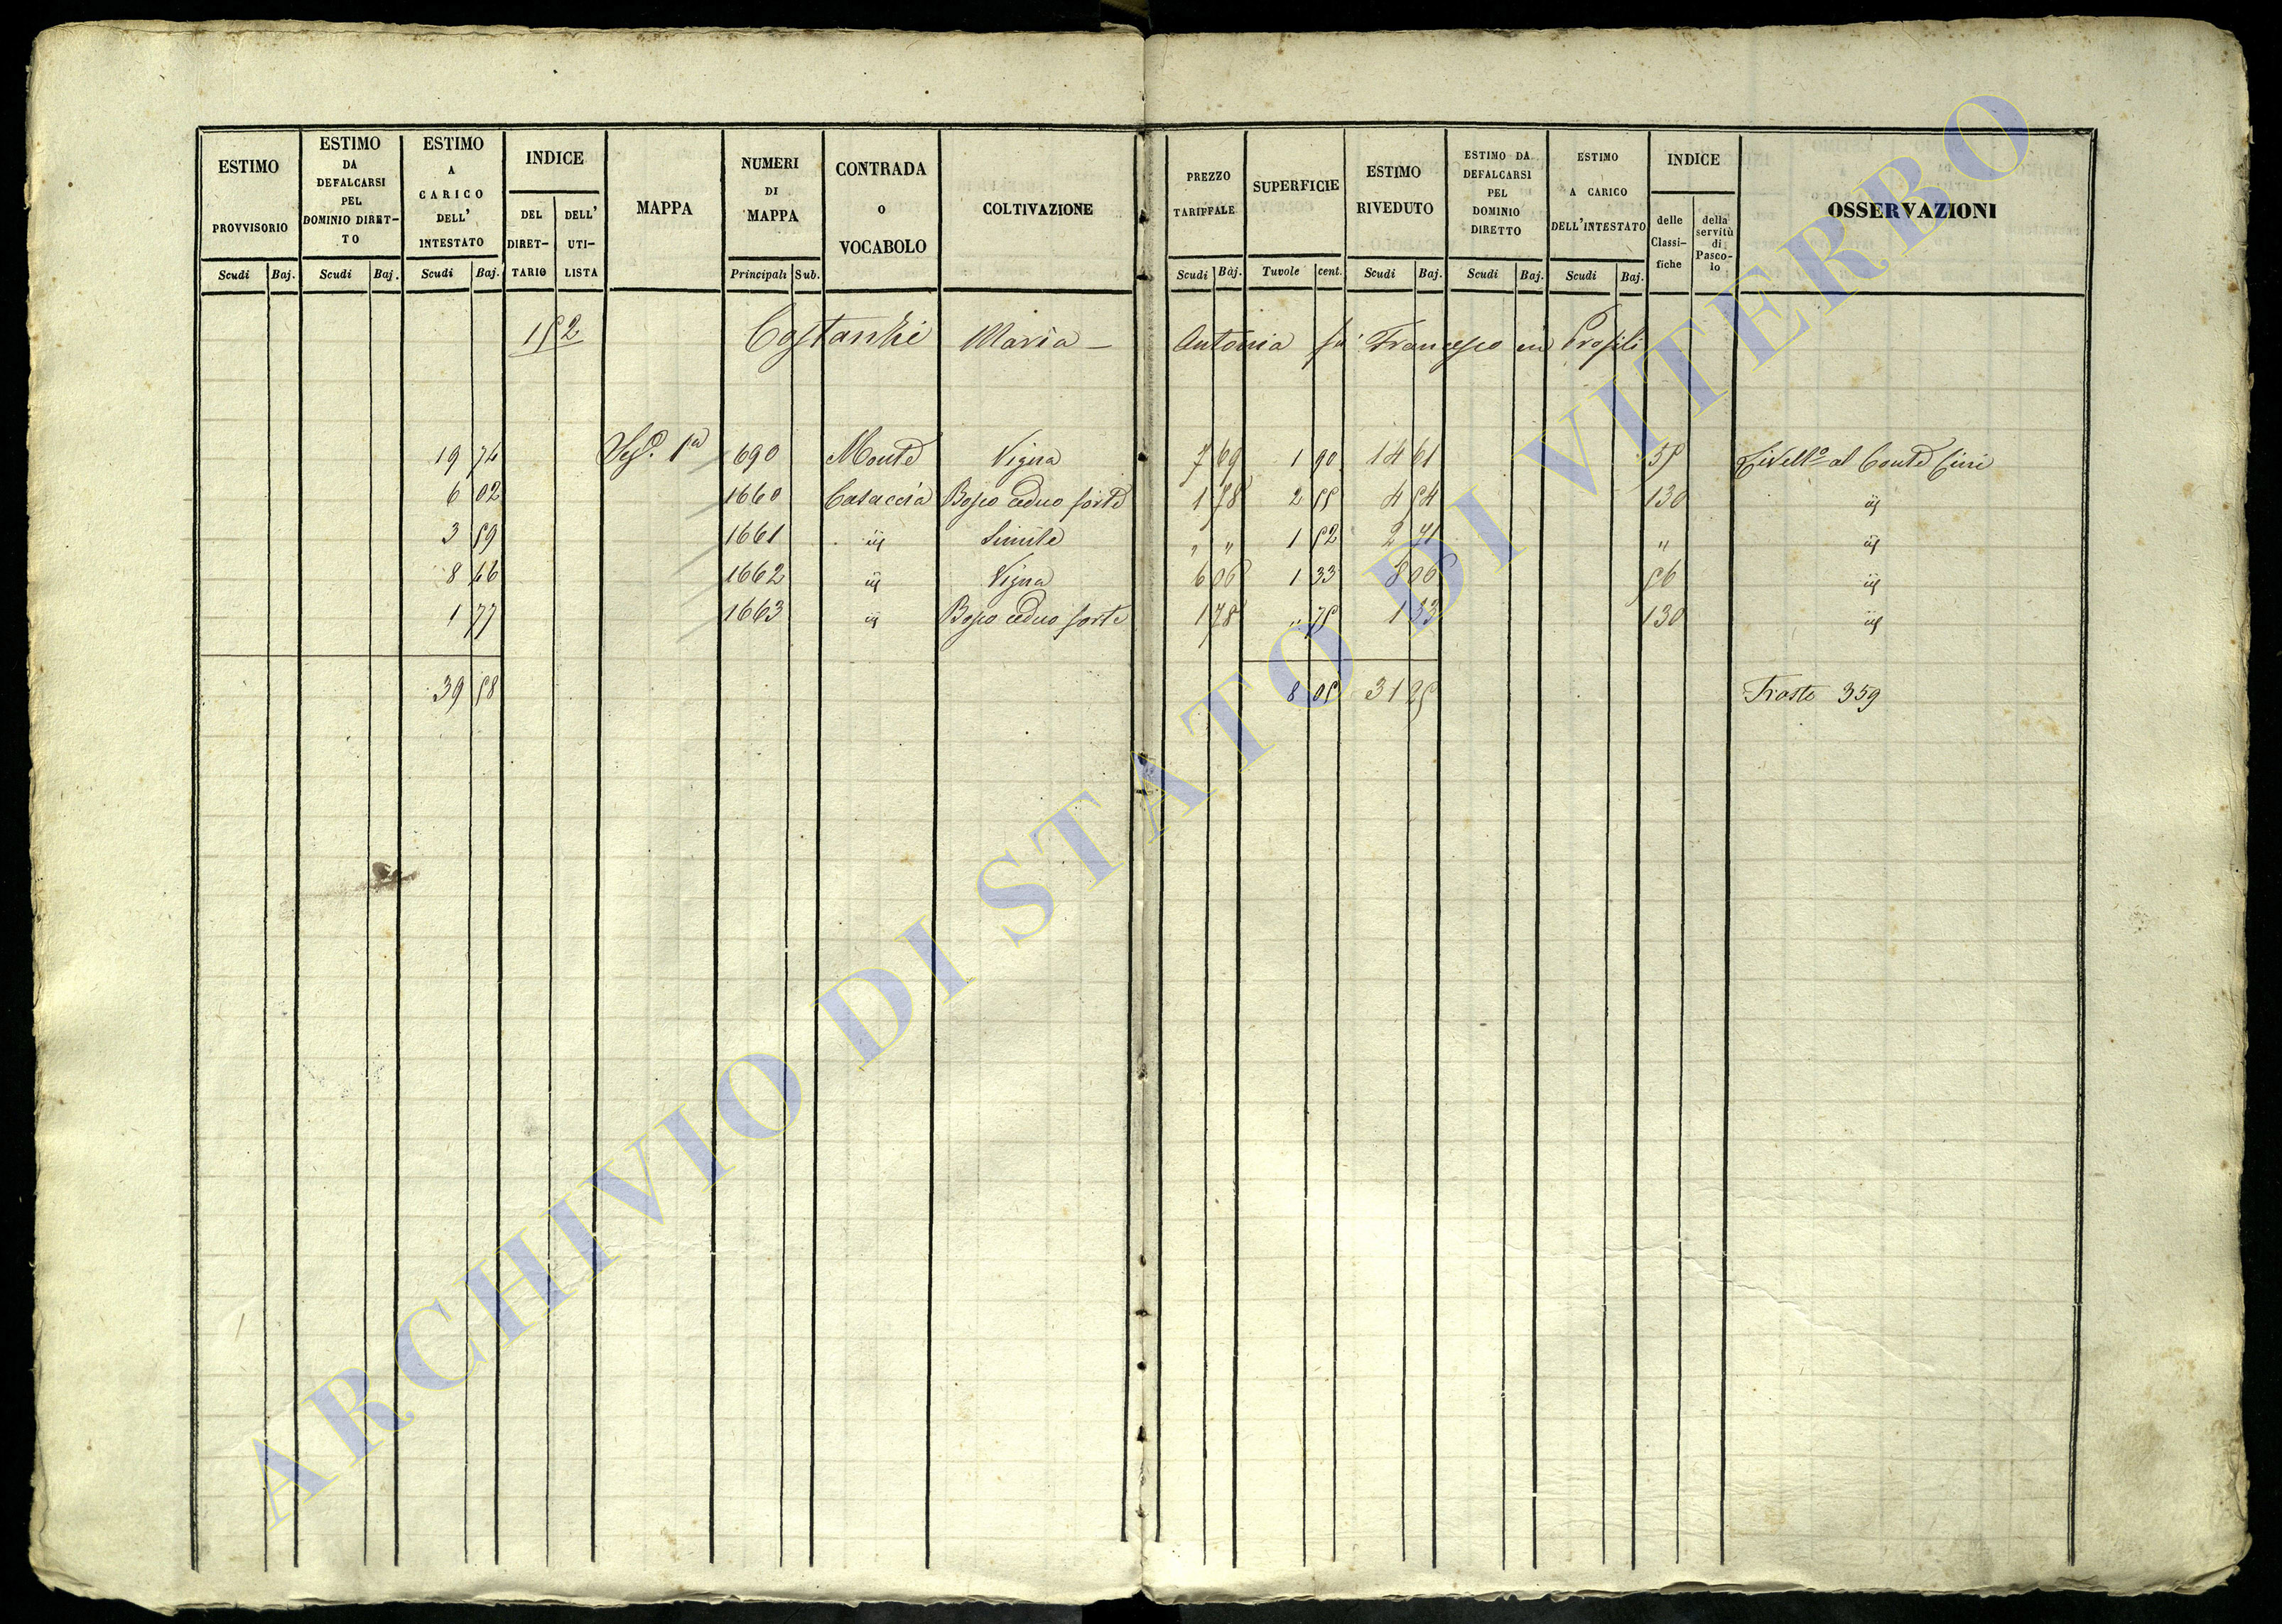 ESTIMO PROVVISORIO
Scudi Baj.
ESTIMO DA DEFALCARSI PEL DOMINIO DIRET-TO
Scudi Baj.
ESTIMO A CARICO DELL' INTESTATO
Scudi Baj.
INDICE
DEL DIRET-TARIO
DELL' UTI-LISTA
MAPPA
NUMERI DI MAPPA
Principali Sub.
CONTRADA O VOCABOLO
COLTIVAZIONE
PREZZO TARIFFALE
Scudi Baj.
SUPERFICIE
Tavole cent.
ESTIMO RIVEDUTO
Scudi Baj.
ESTIMO DA DEFALCARSI PEL DOMINIO DIRETTO
Scudi Baj.
ESTIMO A CARICO DELL'INTESTATO
Scudi Baj.
INDICE
delle Classi-fiche
della servitù di Pasco-lo
OSSERVAZIONI
152 Costanzi Maria - Antonia fu Francesco in Profili
19 74 Sez. 1a 690 Monte Vigna 7 69 1 90 14 61 35 Livello al Conte Cini
6 02 1660 Casaccia Bosco ceduo forte 1 78 2 55 4 54 130 iij
3 59 1661 iij Simile " " 1 52 2 71 " iij
8 46 1662 iij Vigna 6 06 1 33 8 06 56 iij
1 77 1663 iij Bosco ceduo forte 1 78 " 75 1 33 130 iij
39 58 8 05 31 25 Trasto 359
ARCHIVIO DI STATO DI VITERBO